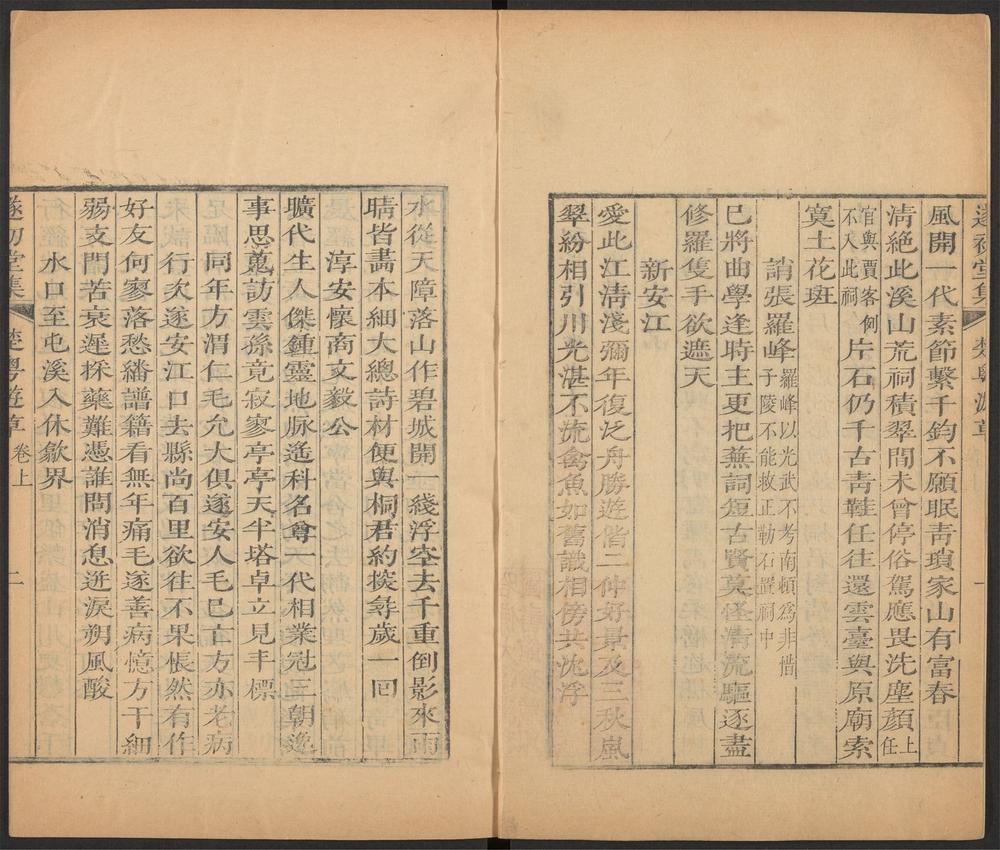 遂初堂集　楚粵游草　一
風開一代素節繫千鈞不願眠靑瑣家山有富春
淸絕此溪山荒祠積翠間未曾停俗駕應畏洗塵顏上任
官與賈客例不入此祠片石仍千古靑鞋任往還雲臺與原廟索
寞土花斑
誚張羅峰羅峰以光武不考南頓爲非措子陵不能救正勒石置祠中
已將曲學逢時主更把蕪詞短古賢莫怪淸流驅逐盡
修羅隻手欲遮天
新安江
愛此江淸淺彌年復泛舟勝遊偕二仲好景及三秋嵐
翠紛相引川光湛不流禽魚如舊識相傍共沈浮
水從天障落山作碧城開一綫浮空去千重倒影來雨
晴皆畵本細大總詩材便與桐君約㨗尋歲一回
淳安懷商文毅公
曠代生人傑鍾靈地脉遙科名尊一代相業冠三朝逸
事思蒐訪雲孫竟寂寥亭亭天半塔卓立見丰標
同年方渭仁毛允大俱遂安人毛已亡方亦老病
行次遂安江口去縣尚百里欲往不果悵然有作
好友何寥落愁繙譜籍看無年痛毛遂善病憶方干細
弱支門苦衰遲採藥難憑誰問消息迸淚朔風酸
水口至屯溪入休歙界
遂初堂集　楚粵遊草　卷上　二